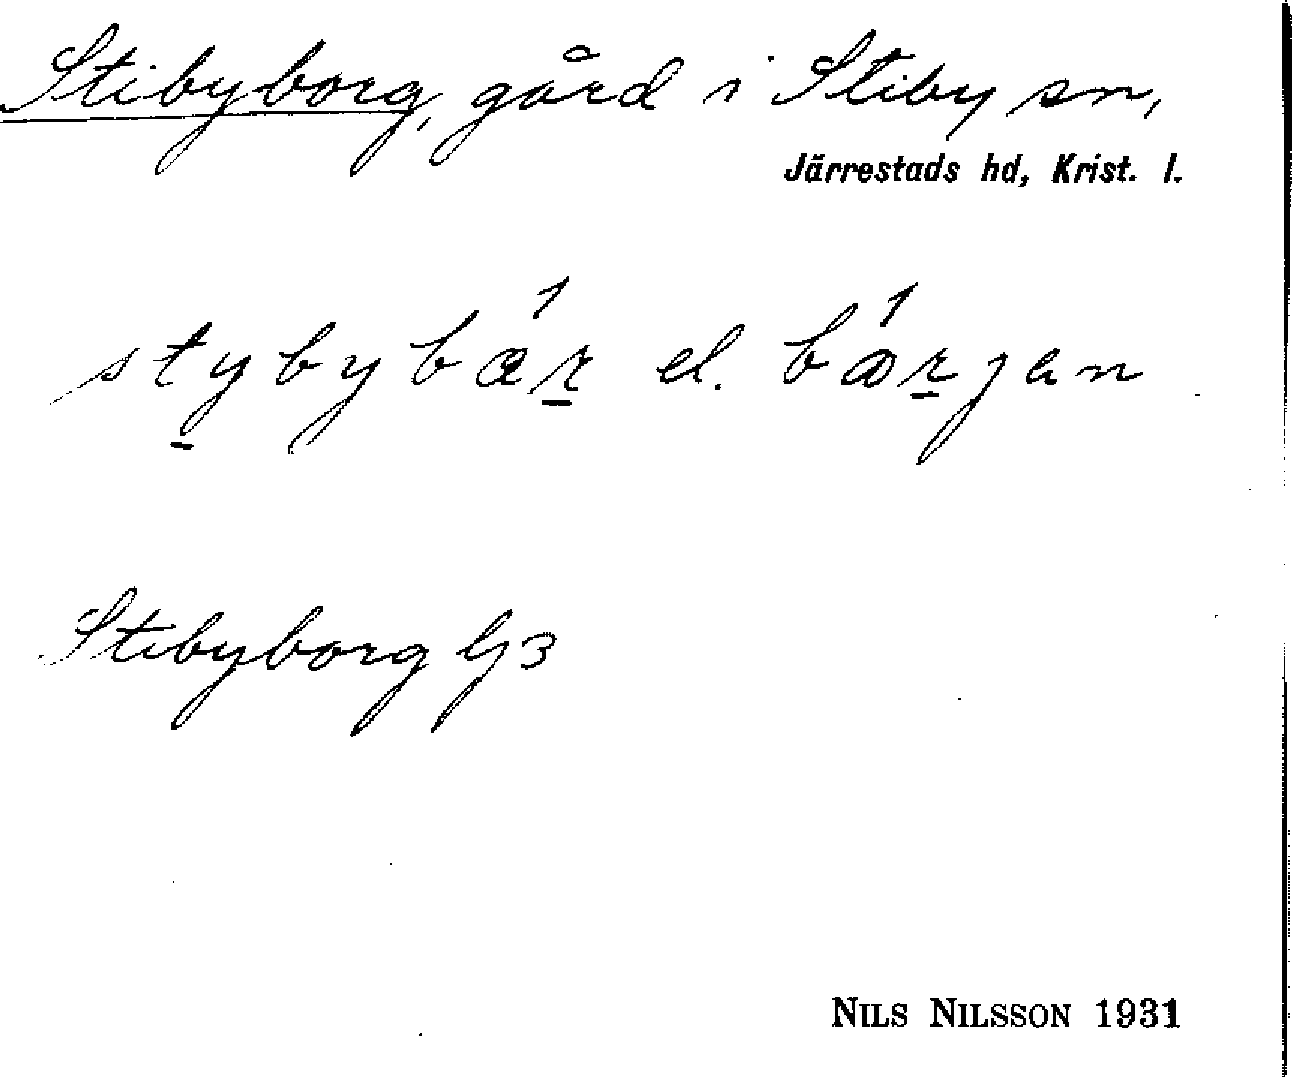 Stibyborg, gård i Stiby sn,
Järrestads hd, Krist. l.
stybybǽr el. bǽrjan
Stibyborg Gj3
NILS NILSSON 1931